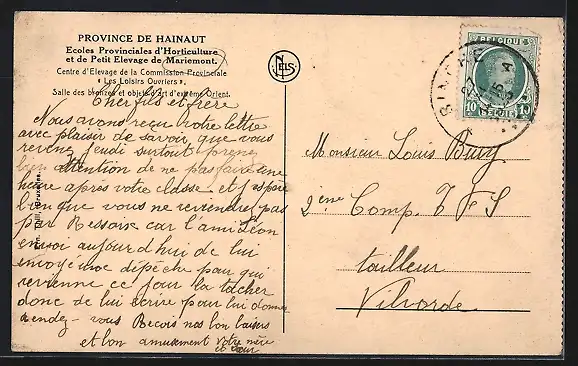 PROVINCE DE HAINAUT
Ecoles Provinciales d'Horticulture
et de Petit Elevage de Mariemont.
Centre d'Elevage de la Commission Provinciale
" Les Loisirs Ouvriers ".
Salle des bronzes et objets d'art d'extrême Orient.
NELS
BELGIQUE
10 BELGIË 10
Cher fils et frère
Nous avons reçu votre lettre
avec plaisir de savoir que vous
revenez jeudi surtout prenez
bien attention de ne pas faire une
heure après votre classe et
bien que vous ne reviendrez pas
par Ressaix car l'ami Léon
envoi aujourd'hui de lui
envoyé une dépêche pour qui
revienne ce jour la tacher
donc de lui écrire pour lui donner
rendez - vous Recois nos bon baisers
et bon amusement votre mère
et sœur
Monsieur Louis
2ème Comp. T F S
tailleur
Vilvorde